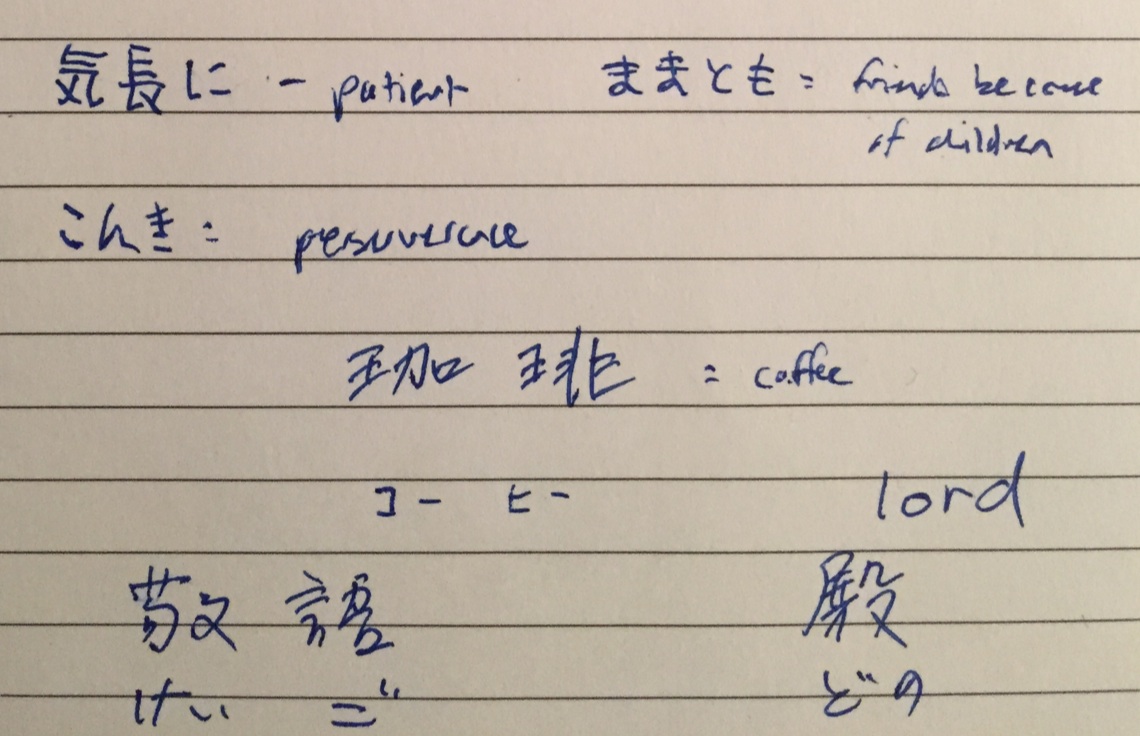 気長に - patient ままとも = friends because
of children
こんき = perseverance
珈琲 = coffee
コーヒー lord
敬語 殿
けい ご どの